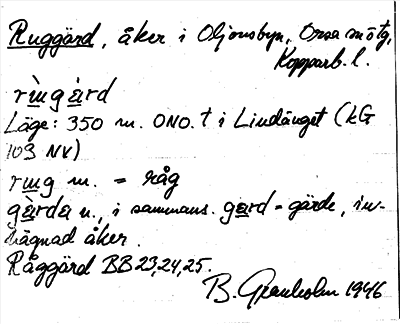 Ruggärd, åker i Oljonsbyn, Orsa
Kopparb. l.
rùṳgä̀rd
Läge: 350 m. ONO. t i Lindänget (kG
103 NV)
rṳg m. = råg
gä̀rda n., i sammans. gärd = gärde, in-
hägnad åker.
Råggärd BB 23,24,25.
B. Granholm 1946